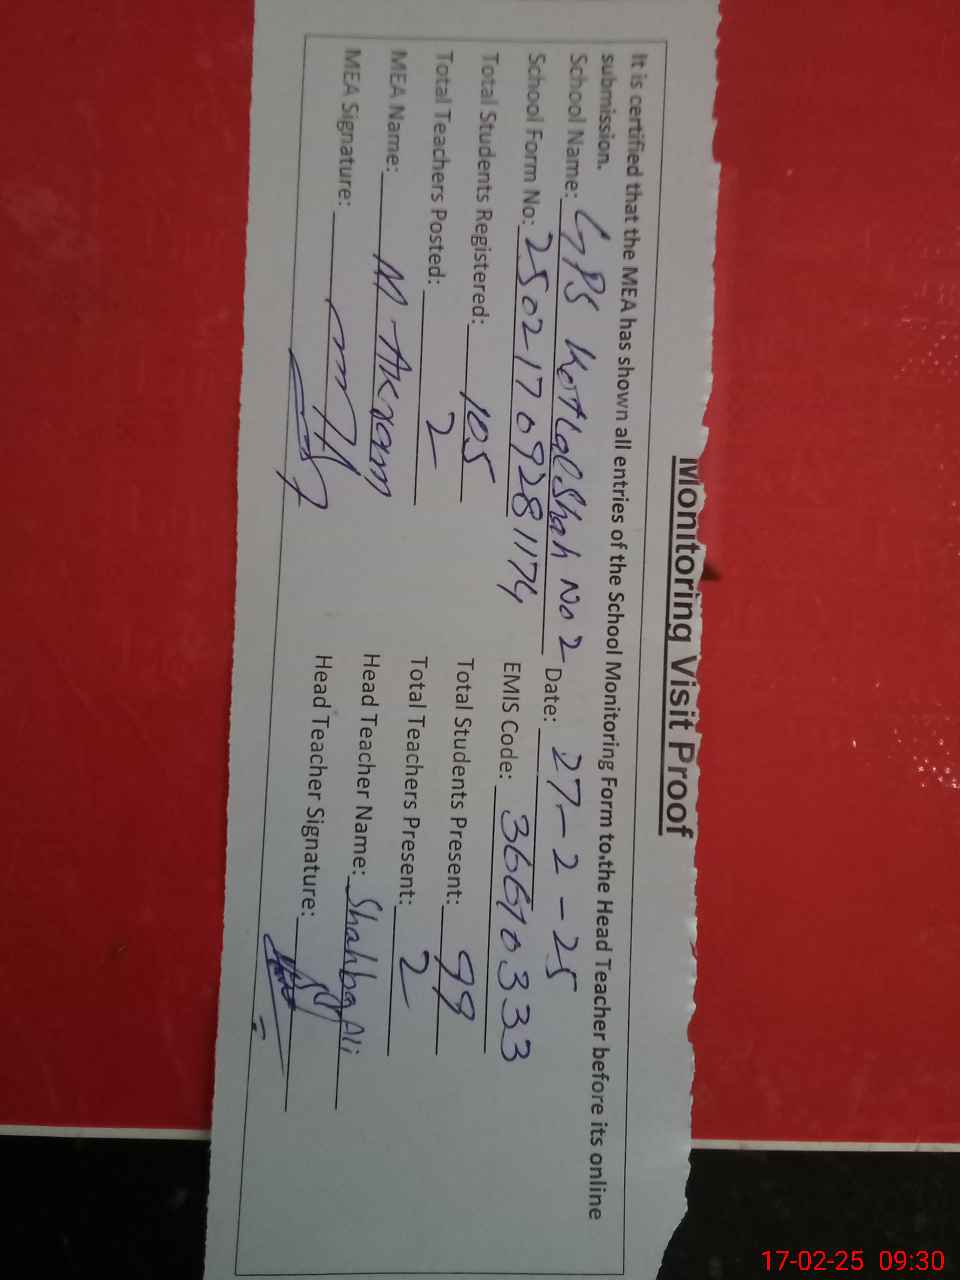 Monitoring Visit Proof
It is certified that the MEA has shown all entries of the School Monitoring Form to the Head Teacher before its online
submission.
School Name: GPS Kotlalshah No 2 Date: 27-2-25
School Form No: 25021709281174 EMIS Code: 36610333
Total Students Registered: 105 Total Students Present: 99
Total Teachers Posted: 2 Total Teachers Present: 2
MEA Name: M Akram Head Teacher Name: Shahbaz Ali
MEA Signature: Head Teacher Signature:
17-02-25 09:30